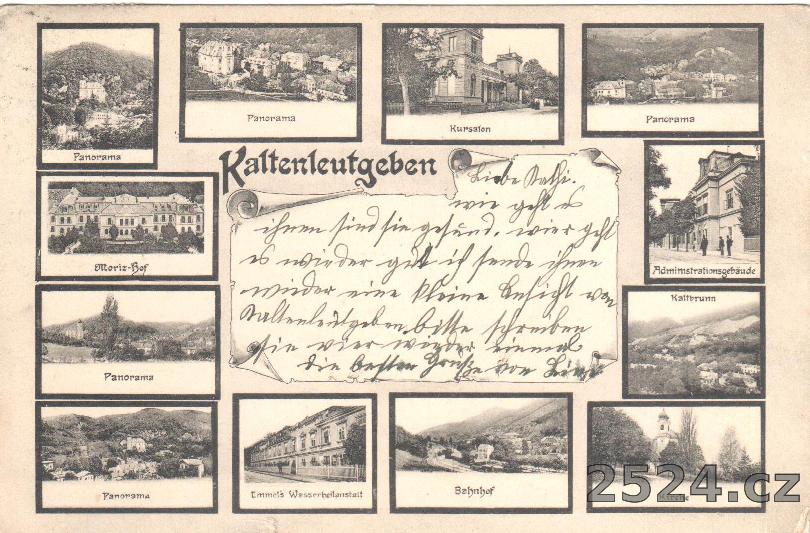 Panorama
Panorama
Kursalon
Panorama
Kaltenleutgeben
Moriz-Hof
Administrationsgebäude
Panorama
Kaltbrunn
Panorama
Emmel's Wasserheilanstalt
Bahnhof
Kirche
Liebe Kathi.
wie geht es
ihnen sind sie gesund. wier geht
es wieder gut ich sende ihnen
wieder eine kleine Ansicht von
Kaltenleutgeben bitte schreben
sie vier wieder einmal
die besten Grüße von
2524.cz